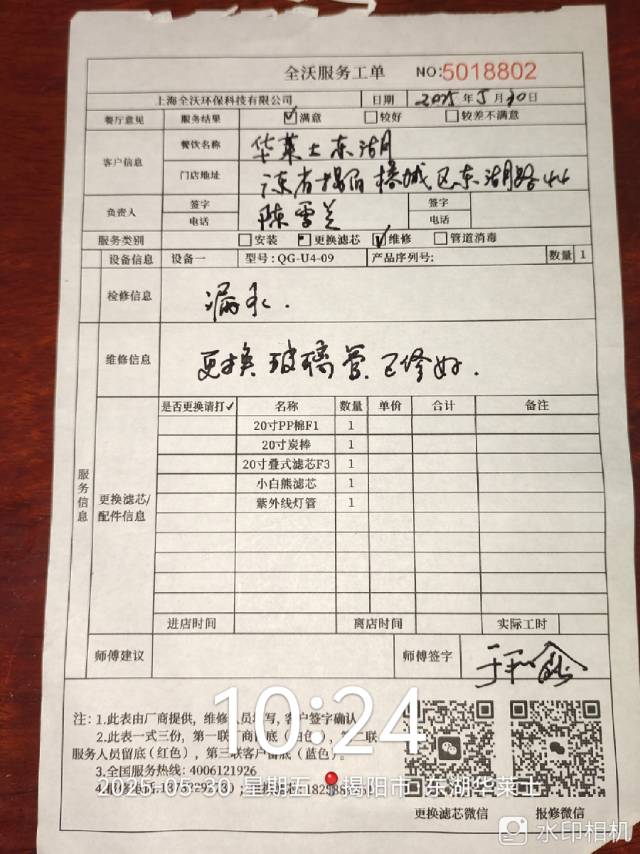 全沃服务工单 NO:5018802
上海全沃环保科技有限公司 日期 2025年5月30日
餐厅意见 服务结果 ☑满意 □较好 □较差不满意
客户信息 餐饮名称 华莱士东湖
门店地址 广东省揭阳榕城区东湖路44
负责人 签字 陈雪兰 签字
电话 电话
服务类别 □安装 □更换滤芯 ☑维修 □管道消毒
设备信息 设备一 型号:QG-U4-09 产品序列号: 数量 1
检修信息 漏水.
维修信息 更换玻璃管.已修好.
服务信息
更换滤芯/配件信息
是否更换请打✓ 名称 数量 单价 合计 备注
20寸PP棉F1 1
20寸炭棒 1
20寸叠式滤芯F3 1
小白熊滤芯 1
紫外线灯管 1
进店时间 离店时间 实际工时
师傅建议 师傅签字
10:24
注:1.此表由厂商提供,维修人员填写,客户签字确认
2.此表一式三份,第一联厂商留底(白色),第二联
服务人员留底(红色),第三联客户留底(蓝色)。
3.全国服务热线:4006121926
2025-05-30 星期五 揭阳市·东湖华莱士
更换滤芯微信 报修微信
水印相机